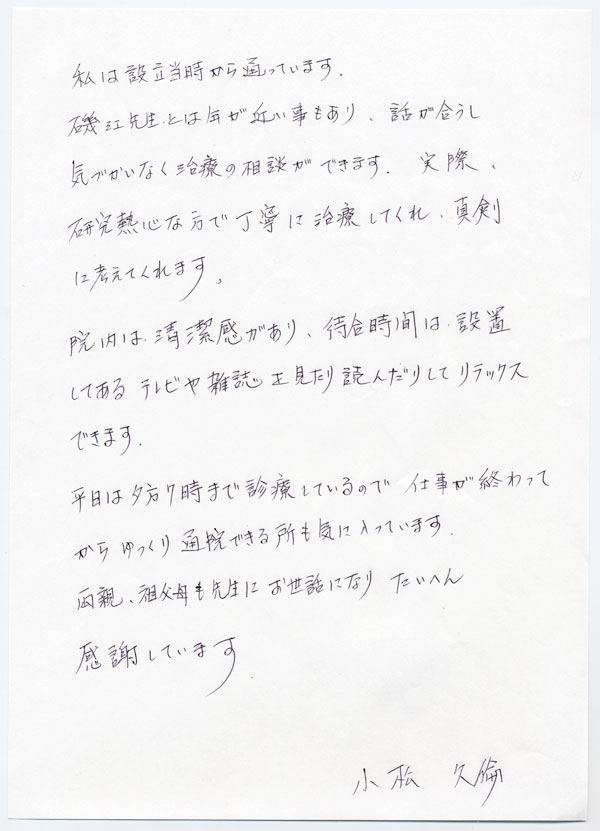 私は設立当時から通っています.
磯江先生とは年が近い事もあり、話が合うし
気づかいなく治療の相談ができます. 実際、
研究熱心な方で丁寧に治療してくれ、真剣
に考えてくれます。
院内は清潔感があり、待合時間は設置
してあるテレビや雑誌を見たり読んだりしてリラックス
できます.
平日は夕方7時まで診療しているので仕事が終わって
からゆっくり通院できる所も気に入っています.
両親、祖父母も先生にお世話になりたいへん
感謝しています
小松 久倫